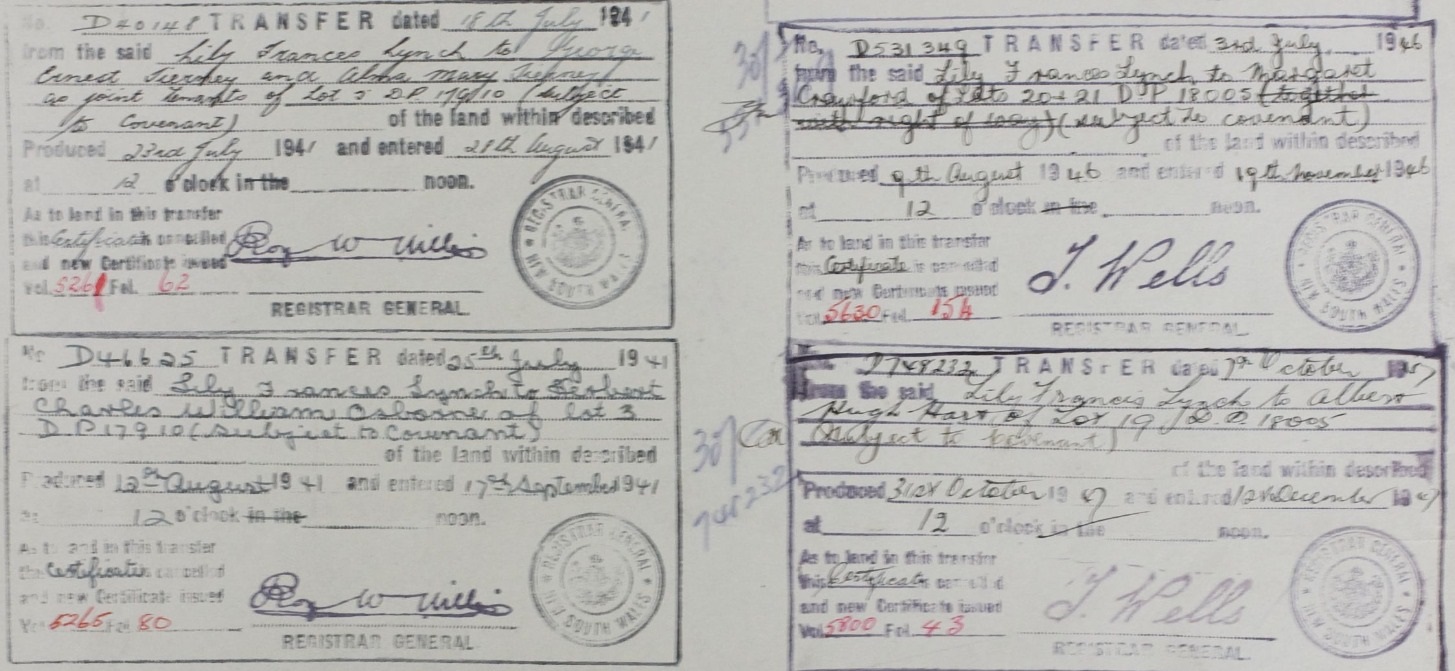 No. D40148 TRANSFER dated 18th July 1941
from the said Lily Frances Lynch to George
Ernest Tierney and Alma Mary Tierney
as joint tenants of Lot 5 D.P. 17910 (subject
to Covenant) of the land within described
Produced 23rd July 1941 and entered 28th August 1941
at 12 o'clock in the noon.
As to land in this transfer
this Certificate is cancelled
and new Certificate issued
Vol. 5261 Fol. 62
REGISTRAR GENERAL.
REGISTRAR GENERAL NEW SOUTH WALES
No. D46625 TRANSFER dated 25th July 1941
from the said Lily Frances Lynch to Herbert
Charles William Osborne of lot 3
D.P 17910 (subject to Covenant)
of the land within described
Produced 12th August 1941 and entered 17th September 1941
at 12 o'clock in the noon.
As to land in this transfer
the Certificate is cancelled
and new Certificate issued
Vol. 5265 Fol. 80
Roy W Willis
REGISTRAR GENERAL.
REGISTRAR GENERAL NEW SOUTH WALES
30/
No. D531349 TRANSFER dated 3rd July 1946
from the said Lily Frances Lynch to Margaret
Crawford of Lots 20 & 21 D.P 18005 (together
with right of way) (subject to covenant)
of the land within described
Produced 9th August 1946 and entered 19th November 1946
at 12 o'clock in the noon.
As to land in this transfer
this Certificate is cancelled
and new Certificate issued
Vol. 5630 Fol. 154
J. Wells
REGISTRAR GENERAL.
REGISTRAR GENERAL NEW SOUTH WALES
No. D748232 TRANSFER dated 7th October 1947
from the said Lily Francis Lynch to Albert
Hugh Hart of Lot 19 D.P. 18005
(subject to covenant)
30/
748232
of the land within described
Produced 31st October 1947 and entered 12th December 1947
at 12 o'clock in the noon.
As to land in this transfer
this Certificate is cancelled
and new Certificate issued
Vol. 5800 Fol. 43
J. Wells
REGISTRAR GENERAL.
REGISTRAR GENERAL NEW SOUTH WALES